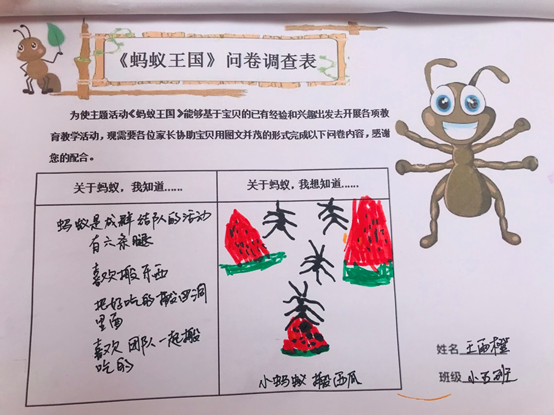 《蚂蚁王国》问卷调查表
为使主题活动《蚂蚁王国》能够基于宝贝的已有经验和兴趣出发去开展各项教
育教学活动，现需要各位家长协助宝贝用图文并茂的形式完成以下问卷内容，感谢
您的配合。
关于蚂蚁，我知道......
关于蚂蚁，我想知道......
蚂蚁是成群结队的活动
有六条腿
喜欢搬东西
把好吃的搬回洞
里面
喜欢团队一起搬
吃的
小蚂蚁搬西瓜
姓名 王雨橙
班级 小五班